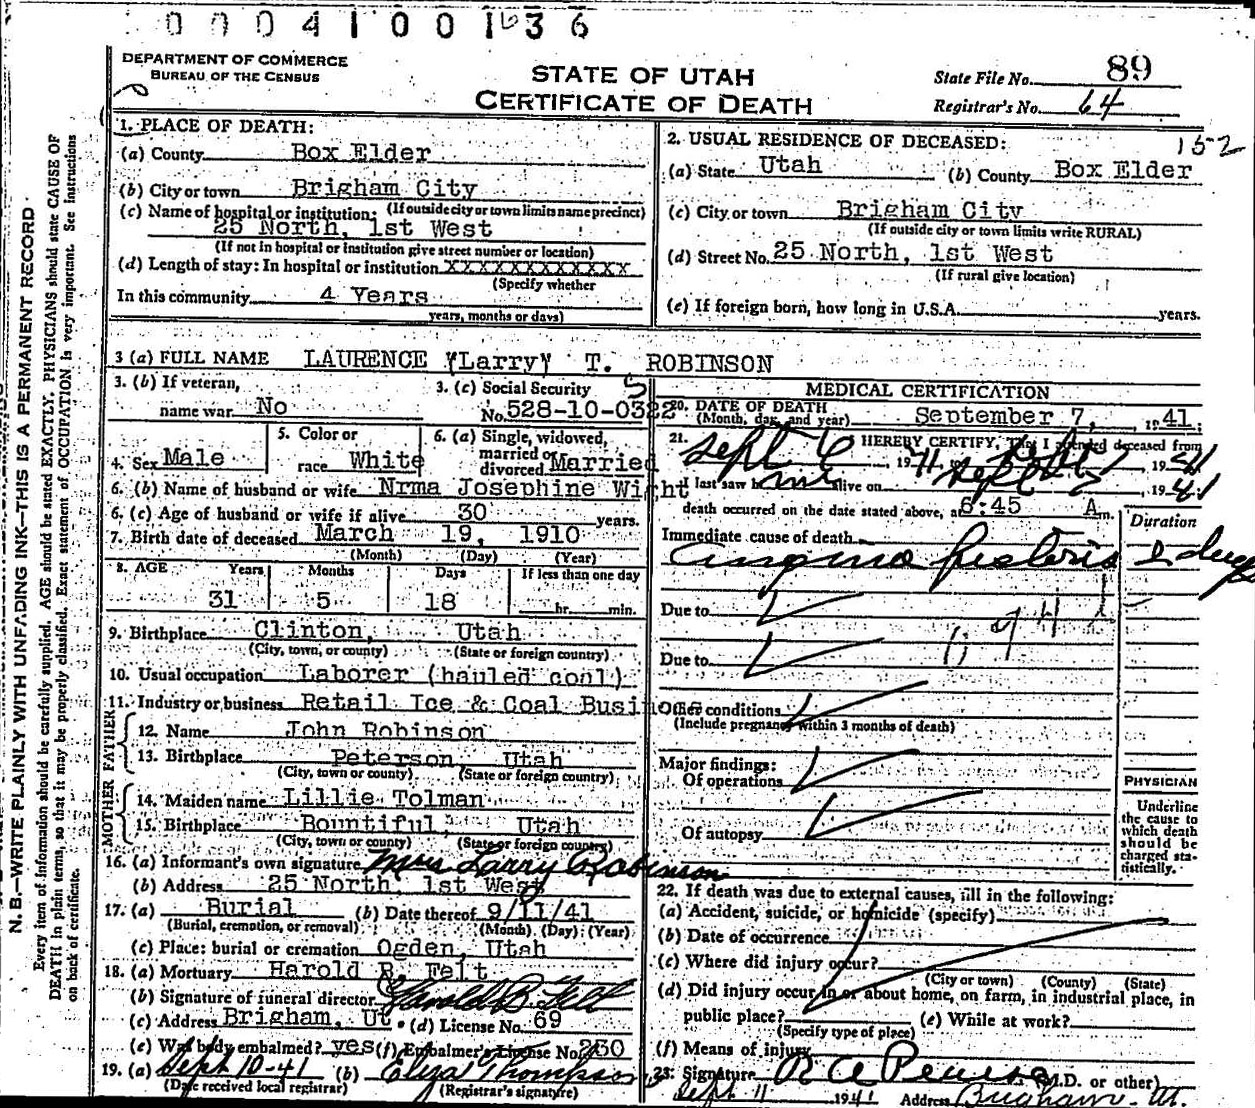 0004100136
DEPARTMENT OF COMMERCE
BUREAU OF THE CENSUS
STATE OF UTAH
CERTIFICATE OF DEATH
State File No. 89
Registrar's No. 64
152
1. PLACE OF DEATH:
(a) County Box Elder
(b) City or town Brigham City
(c) Name of hospital or institution: (If outside city or town limits name precinct)
25 North, 1st West
(If not in hospital or institution give street number or location)
(d) Length of stay: In hospital or institution XXXXXXXXXXXX
(Specify whether
In this community 4 Years
years, months or days)
2. USUAL RESIDENCE OF DECEASED:
(a) State Utah (b) County Box Elder
(c) City or town Brigham City
(If outside city or town limits write RURAL)
(d) Street No. 25 North, 1st West
(If rural give location)
(e) If foreign born, how long in U.S.A. years.
3 (a) FULL NAME LAURENCE "Larry" T. ROBINSON
3. (b) If veteran,
name war No
3. (c) Social Security
No. 528-10-0322
4. Sex Male
5. Color or
race White
6. (a) Single, widowed,
married or
divorced Married
6. (b) Name of husband or wife Nrma Josephine Wight
6. (c) Age of husband or wife if alive 30 years.
7. Birth date of deceased March 19, 1910
(Month) (Day) (Year)
8. AGE Years Months Days If less than one day
31 5 18 hr. min.
9. Birthplace Clinton, Utah
(City, town, or county) (State or foreign country)
10. Usual occupation Laborer (hauled coal)
11. Industry or business Retail Ice & Coal Business
FATHER
12. Name John Robinson
13. Birthplace Peterson, Utah
(City, town or county) (State or foreign country)
MOTHER
14. Maiden name Lillie Tolman
15. Birthplace Bountiful, Utah
(City, town or county) (State or foreign country)
16. (a) Informant's own signature Mrs Larry Robinson
(b) Address 25 North, 1st West
17. (a) Burial (b) Date thereof 9/11/41
(Burial, cremation, or removal) (Month) (Day) (Year)
(c) Place: burial or cremation Ogden, Utah
18. (a) Mortuary Harold B. Felt
(b) Signature of funeral director Harold B. Felt
(c) Address Brigham, Ut. (d) License No. 69
(e) Was body embalmed? yes (f) Embalmer's License No. 230
19. (a) Sept 10-41 (b) Eliza Thompson
(Date received local registrar) (Registrar's signature)
MEDICAL CERTIFICATION
20. DATE OF DEATH
(Month, day, and year) September 7, 1941.
21. I HEREBY CERTIFY, That I attended deceased from
Sept 6, 1941 to Sept 7 1941
I last saw him alive on Sept 7, 1941
death occurred on the date stated above, at 6:45 A m.
Duration
Immediate cause of death
Angina Pectoris 2 days
Due to
Due to
Other conditions
(Include pregnancy within 3 months of death)
Major findings:
Of operations
Of autopsy
PHYSICIAN
Underline
the cause to
which death
should be
charged sta-
tistically.
22. If death was due to external causes, fill in the following:
(a) Accident, suicide, or homicide (specify)
(b) Date of occurrence
(c) Where did injury occur?
(City or town) (County) (State)
(d) Did injury occur in or about home, on farm, in industrial place, in
public place? (e) While at work?
(Specify type of place)
(f) Means of injury
23. Signature R A Pearse (M.D. or other)
Sept 11 1941 Address Brigham Ut.
N. B.—WRITE PLAINLY WITH UNFADING INK—THIS IS A PERMANENT RECORD
Every item of information should be carefully supplied. AGE should be stated EXACTLY. PHYSICIANS should state CAUSE OF
DEATH in plain terms, so that it may be properly classified. Exact statement of OCCUPATION is very important. See Instructions
on back of certificate.